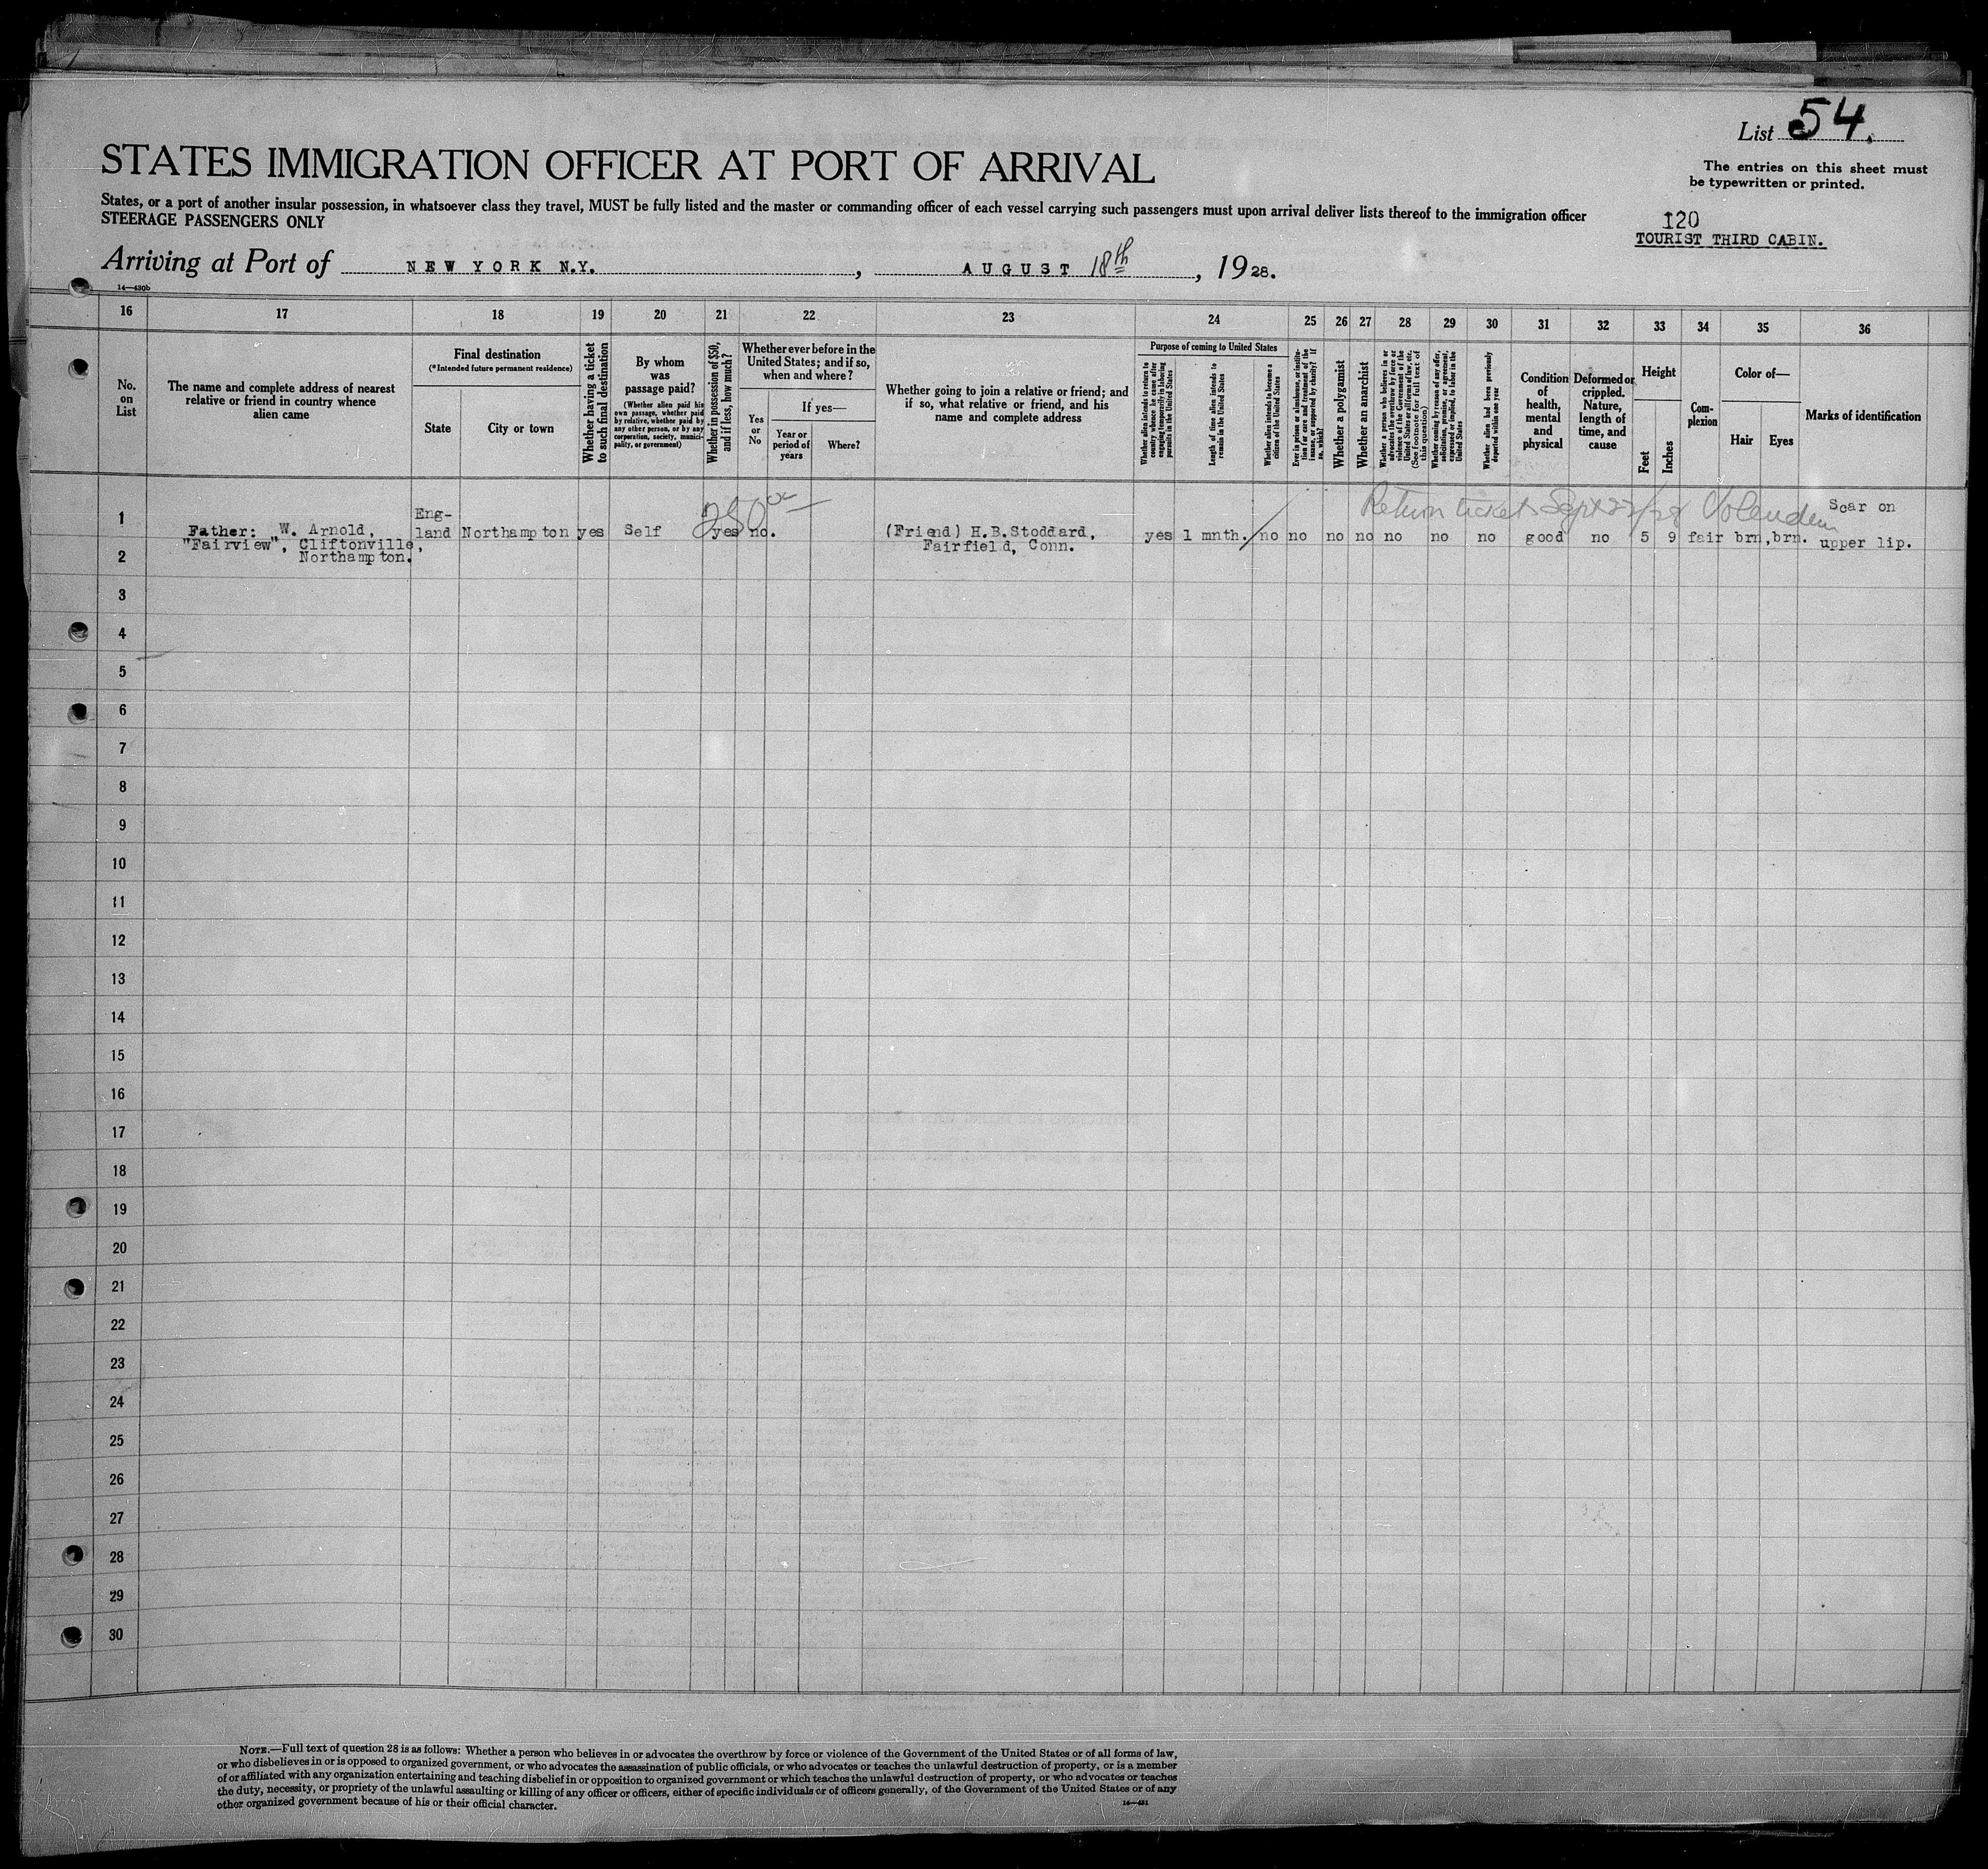 List 54.
STATES IMMIGRATION OFFICER AT PORT OF ARRIVAL
The entries on this sheet must
be typewritten or printed.
States, or a port of another insular possession, in whatsoever class they travel, MUST be fully listed and the master or commanding officer of each vessel carrying such passengers must upon arrival deliver lists thereof to the immigration officer
STEERAGE PASSENGERS ONLY
120
TOURIST THIRD CABIN.
Arriving at Port of NEW YORK N.Y. , AUGUST 18th , 1928.
14—430b
16 17 18 19 20 21 22 23 24 25 26 27 28 29 30 31 32 33 34 35 36
No.
on
List
The name and complete address of nearest
relative or friend in country whence
alien came
Final destination
(*Intended future permanent residence)
State
City or town
Whether having a ticket
to such final destination
By whom
was
passage paid?
(Whether alien paid his
own passage, whether paid
by relative, whether paid by
any other person, or by any
corporation, society, munici-
pality, or government)
Whether in possession of $50,
and if less, how much?
Whether ever before in the
United States; and if so,
when and where?
Yes
or
No
If yes—
Year or
period of
years
Where?
Whether going to join a relative or friend; and
if so, what relative or friend, and his
name and complete address
Purpose of coming to United States
Whether alien intends to return to
country whence he came after
engaging temporarily in laboring
pursuits in the United States
Length of time alien intends to
remain in the United States
Whether alien intends to become a
citizen of the United States
Ever in prison or almshouse, or institu-
tion for care and treatment of the
insane, or supported by charity? If
so, which?
Whether a polygamist
Whether an anarchist
Whether a person who believes in or
advocates the overthrow by force or
violence of the Government of the
United States or all forms of law, etc.
(See footnote for full text of
this question)
Whether coming by reason of any offer,
solicitation, promise, or agreement,
expressed or implied, to labor in the
United States
Whether alien had been previously
deported within one year
Condition
of
health,
mental
and
physical
Deformed or
crippled.
Nature,
length of
time, and
cause
Height
Feet
Inches
Com-
plexion
Color of—
Hair
Eyes
Marks of identification
250 00
Return ticket Sept 22/28 Volendam
1 Father: W. Arnold,
"Fairview", Cliftonville,
Northampton.
Eng-
land Northampton yes Self yes no.
(Friend) H.B.Stoddard,
Fairfield, Conn.
yes 1 mnth. no no no no no no no good no 5 9 fair brn,brn.
Scar on
upper lip.
2
3
4
5
6
7
8
9
10
11
12
13
14
15
16
17
18
19
20
21
22
23
24
25
26
27
28
29
30
NOTE.—Full text of question 28 is as follows: Whether a person who believes in or advocates the overthrow by force or violence of the Government of the United States or of all forms of law,
or who disbelieves in or is opposed to organized government, or who advocates the assassination of public officials, or who advocates or teaches the unlawful destruction of property, or is a member
of or affiliated with any organization entertaining and teaching disbelief in or opposition to organized government or which teaches the unlawful destruction of property, or who advocates or teaches
the duty, necessity, or propriety of the unlawful assaulting or killing of any officer or officers, either of specific individuals or of officers generally, of the Government of the United States or of any
other organized government because of his or their official character.
14—431